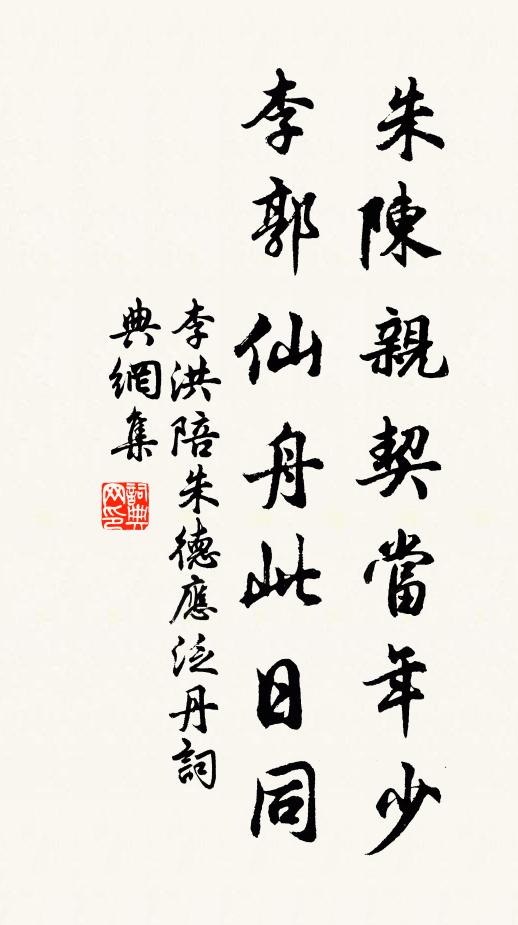 朱陳親契當年少
李郭仙舟此日同
李洪陪朱德應泛丹詞
典網集
詞典
网印